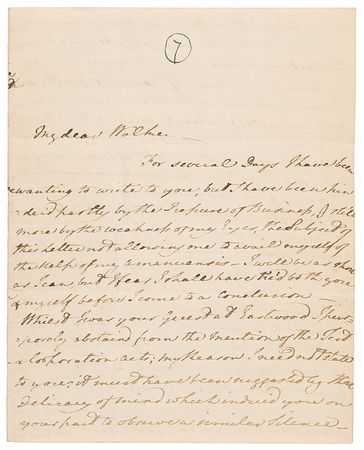 7
My dear Walker
For several Days I have been
wanting to write to you, but I have been hin
-dered partly by the Presure of Business, & still
more by the weakness of my Eyes, the Subject of
this letter not allowing me to avail myself of
the help of my Amanuensis — I will be as short
as I can, but I fear I shall have tir'd both you
& myself before I come to a conclusion —
Whilst I was your Guest at Eastwood I pur-
-posely abstain from the Mention of the Test
& Corporation acts; my Reason I need not state
to you; it must have been suggested by that
Delicacy of Mind which induced you on
your part to observe a similar Silence —